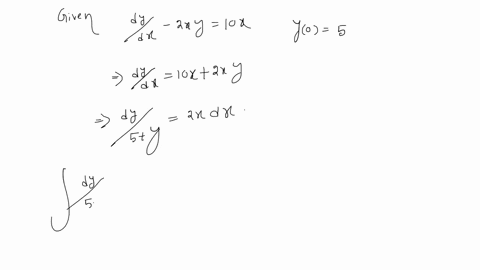 Given dy/dx - 2xy = 10x y(0) = 5
⇒ dy/dx = 10x + 2xy
⇒ dy/5+y = 2x dx.
∫ dy/5